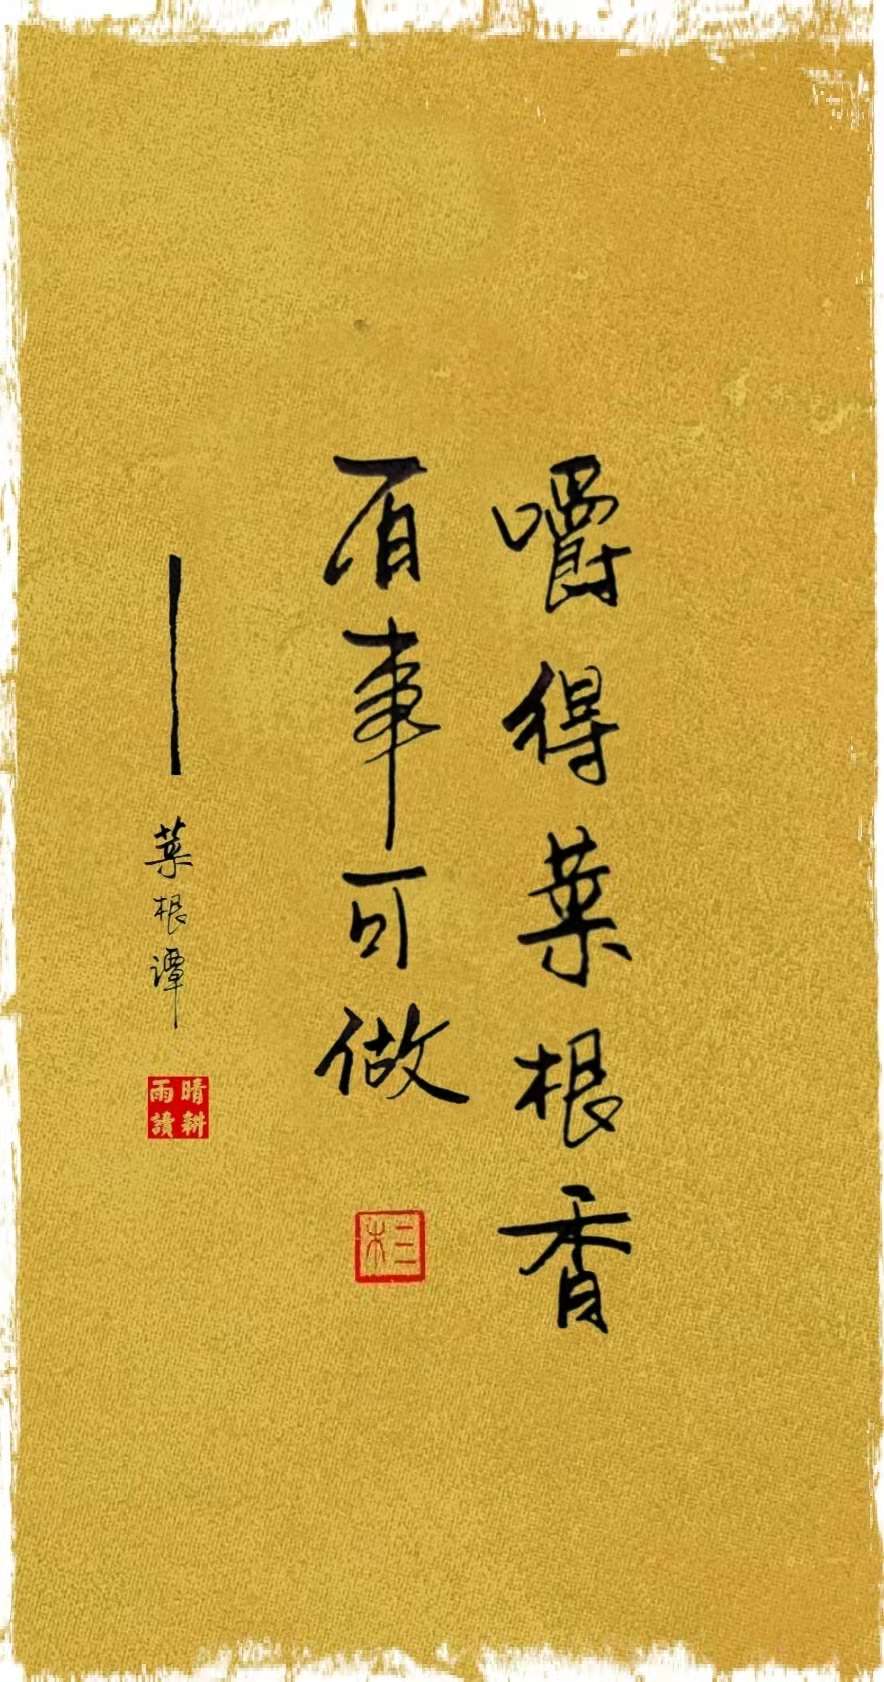 嚼得菜根香
百事可做
——菜根谭
晴耕
雨讀
三木